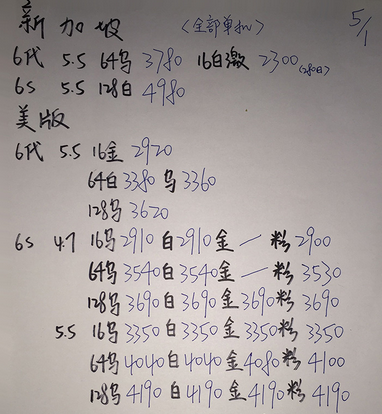 新加坡 (全部单机) 5/1
6代 5.5 64乌 3780 16白激 2300(280日)
6S 5.5 128白 4980
美版
6代 5.5 16金 2920
64白 3380 乌 3360
128乌 3620
6S 4.7 16乌 2910 白 2910 金 — 粉 2900
64乌 3540 白 3540 金 — 粉 3530
128乌 3690 白 3690 金 3690 粉 3690
5.5 16乌 3350 白 3350 金 3350 粉 3350
64乌 4040 白 4040 金 4080 粉 4100
128乌 4190 白 4190 金 4190 粉 4190